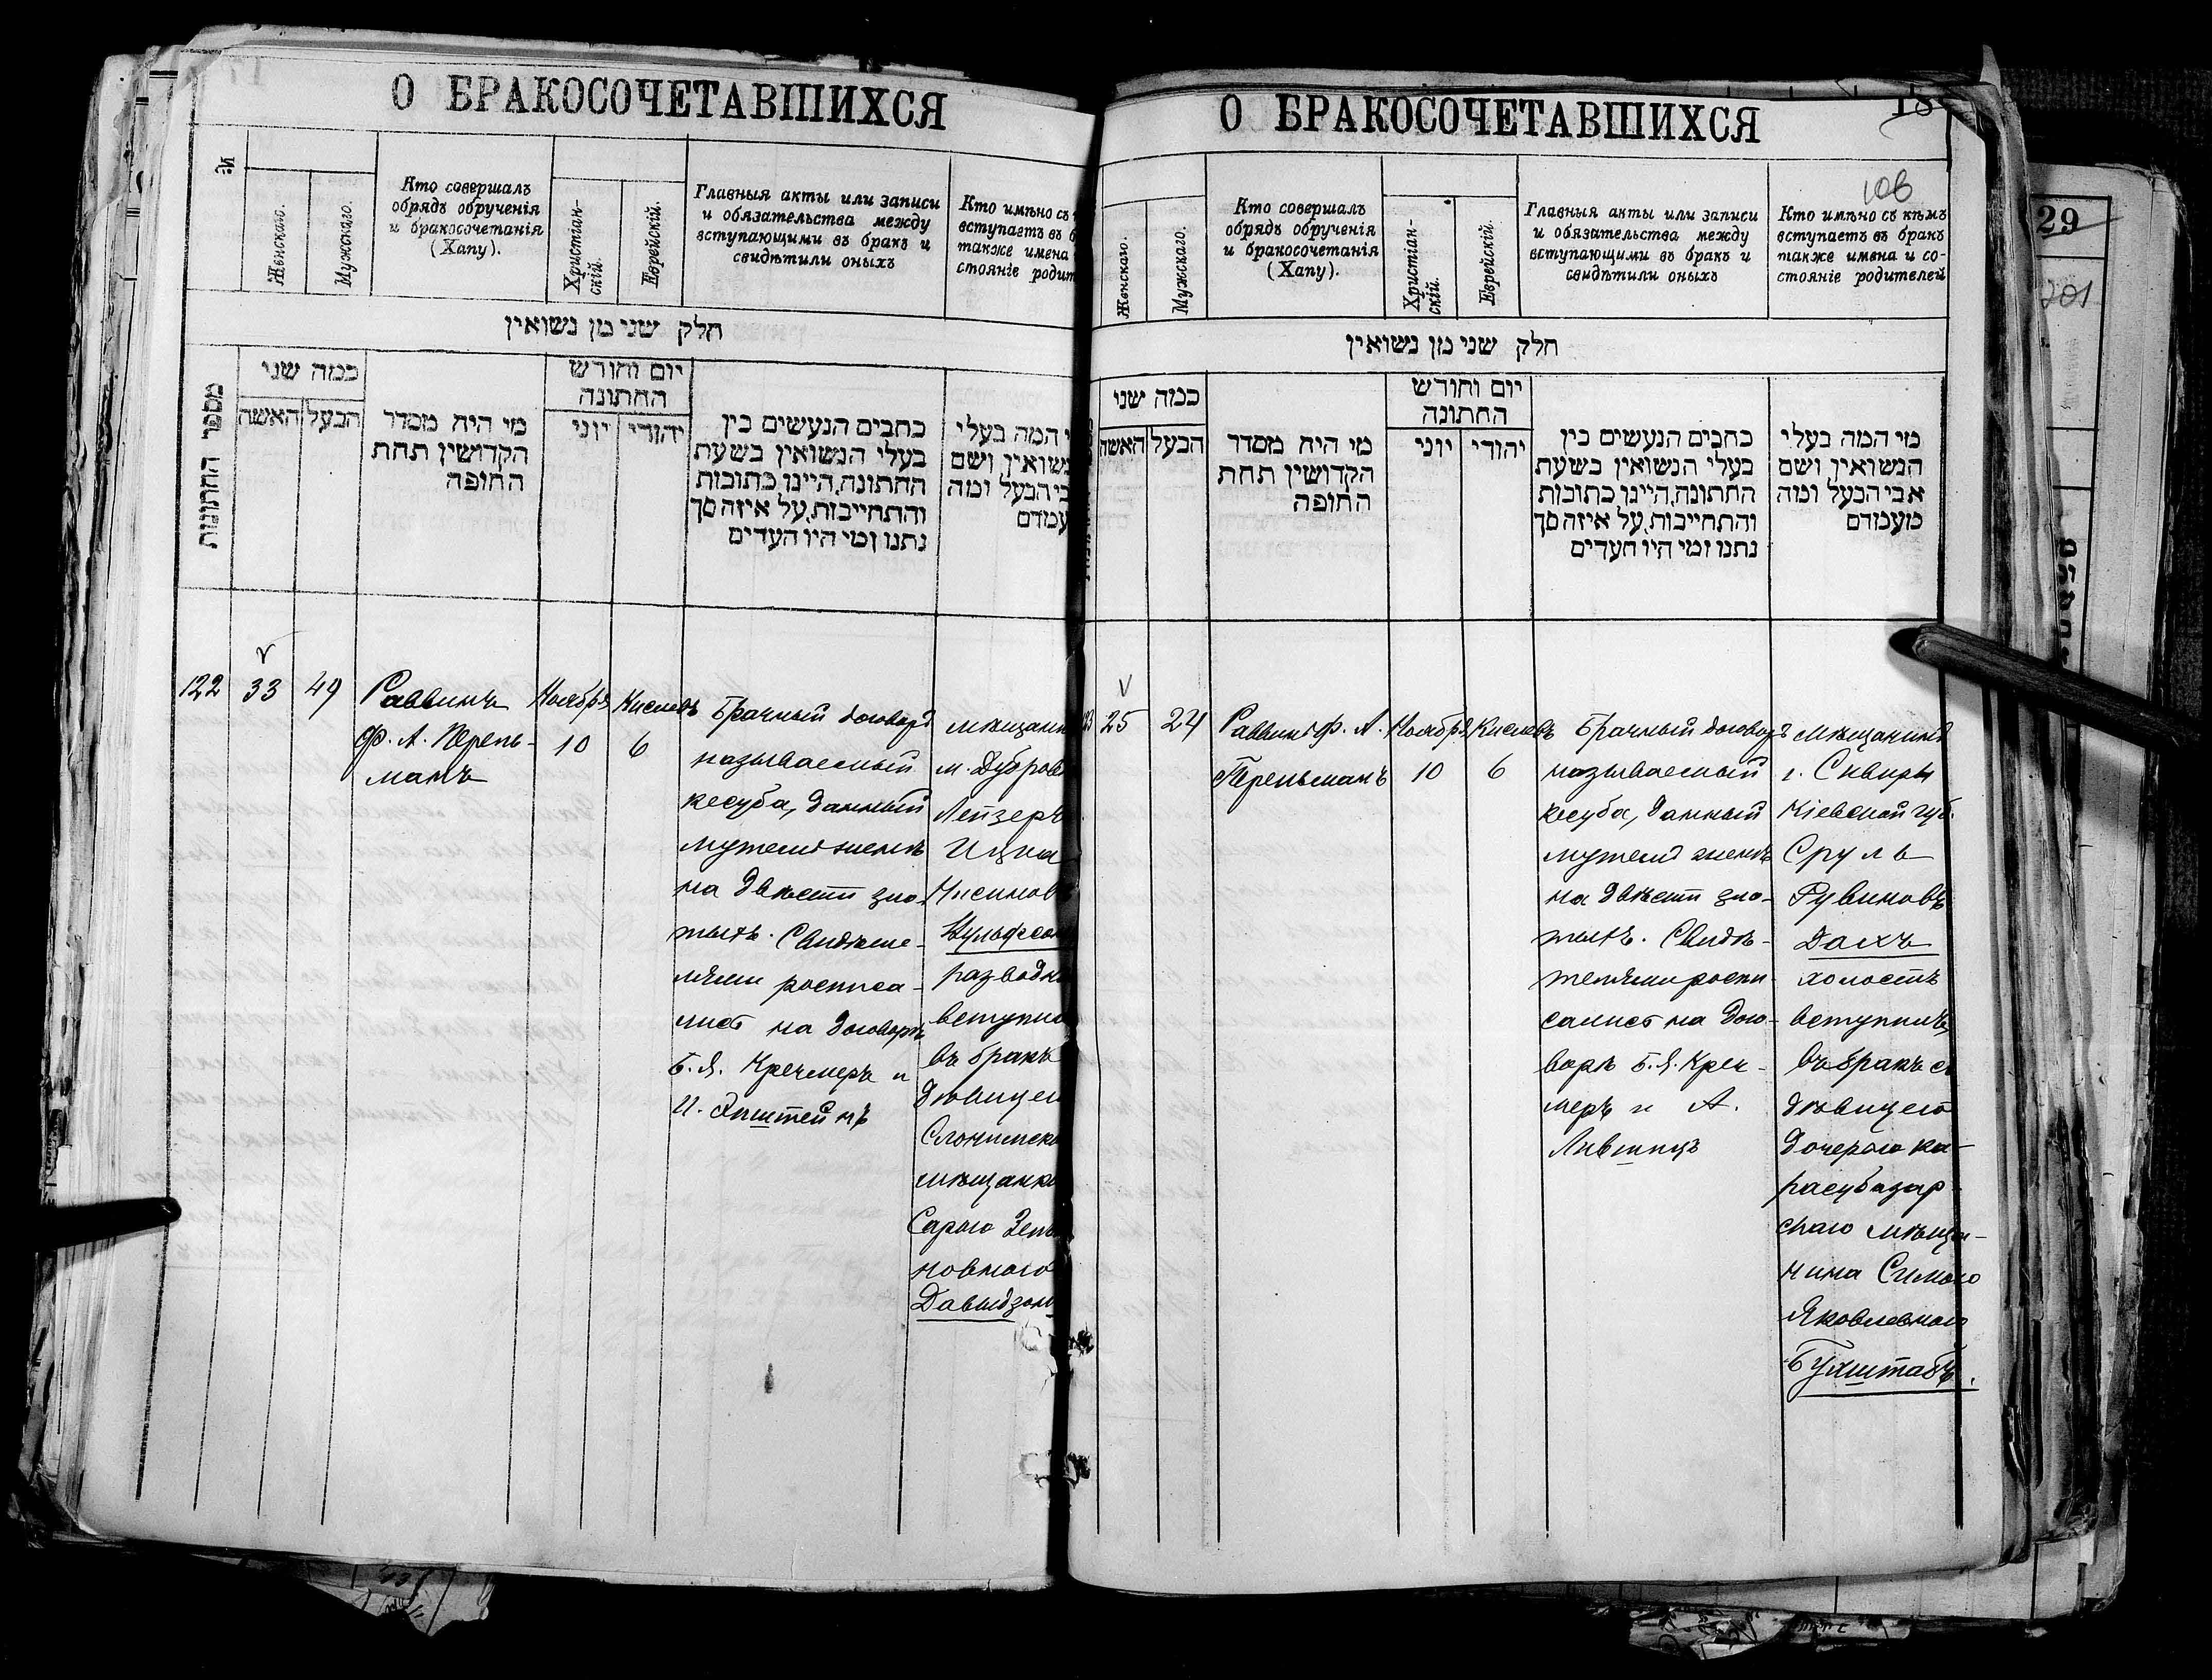 О БРАКОСОЧЕТАВШИХСЯ
№
Женскаго.
Мужскаго.
Кто совершалъ
обрядъ обрученія
и бракосочетанія
(Хапу).
Христіан-
скій.
Еврейскій.
Главныя акты или записи
и обязательства между
вступающими въ бракъ и
свидѣтили оныхъ
Кто имѣно съ
вступаетъ въ
также имена
стояніе родит
חלק שני מן נשואין
מספר החתונות
כמה שני
האשה
הבעל
מי היה מסדר
הקדושין תחת
החופה
יום וחודש
החתונה
יוני
יהודי
כתבים הנעשים בין
בעלי הנשואין בשעת
החתונה, היינו כתובות
והתחייבות, על איזה סך
נתנו ומי היו העדים
י המה בעלי
נשואין ושם
בי הבעל ומה
עמדם
122
33
49
Раввинъ
Ф. А. Перель-
манъ
Ноябрь
10
Кислевъ
6
Брачный договоръ
называемый
кесуба, данный
мужемъ женѣ
на двѣсти зло-
тыхъ. Свидѣте-
лями росписа-
лись на договорѣ
Б. Я. Кречмеръ и
И. Эпштейнъ
мѣщанин
м. Дубров
Лейзеръ
Ицка
Нисинов
Вульфсон
разводн
вступил
въ бракъ
дѣвицею
Слонимск
мѣщанк
Сарою Зель
новною
Давыдзон
О БРАКОСОЧЕТАВШИХСЯ
18
106
Женскаго.
Мужскаго.
Кто совершалъ
обрядъ обрученія
и бракосочетанія
(Хапу).
Христіан-
скій.
Еврейскій.
Главныя акты или записи
и обязательства между
вступающими въ бракъ и
свидѣтили оныхъ
Кто имѣно съ кѣмъ
вступаетъ въ бракъ
также имена и со-
стояніе родителей
חלק שני מן נשואין
כמה שני
האשה
הבעל
מי היה מסדר
הקדושין תחת
החופה
יום וחודש
החתונה
יוני
יהודי
כתבים הנעשים בין
בעלי הנשואין בשעת
החתונה, היינו כתובות
והתחייבות, על איזה סך
נתנו ומי היו העדים
מי המה בעלי
הנשואין ושם
אבי הבעל ומה
מעמדם
25
24
Раввинъ Ф. А.
Перельманъ
Ноябрь
10
Кислевъ
6
Брачный договоръ
называемый
кесуба, данный
мужемъ женѣ
на двѣсти зло-
тыхъ. Свидѣ-
телями роспи-
сались на дого-
ворѣ Б. Я. Креч-
меръ и А.
Лившицъ
мѣщанинъ
г. Сквиры
Кіевской губ.
Сруль
Рувиновъ
Дахъ
холостъ
вступилъ
въ бракъ съ
дѣвицею
дочерью ка-
расубазар-
скаго мѣща-
нина Симою
Яковлевною
Бухштабъ.
29
201